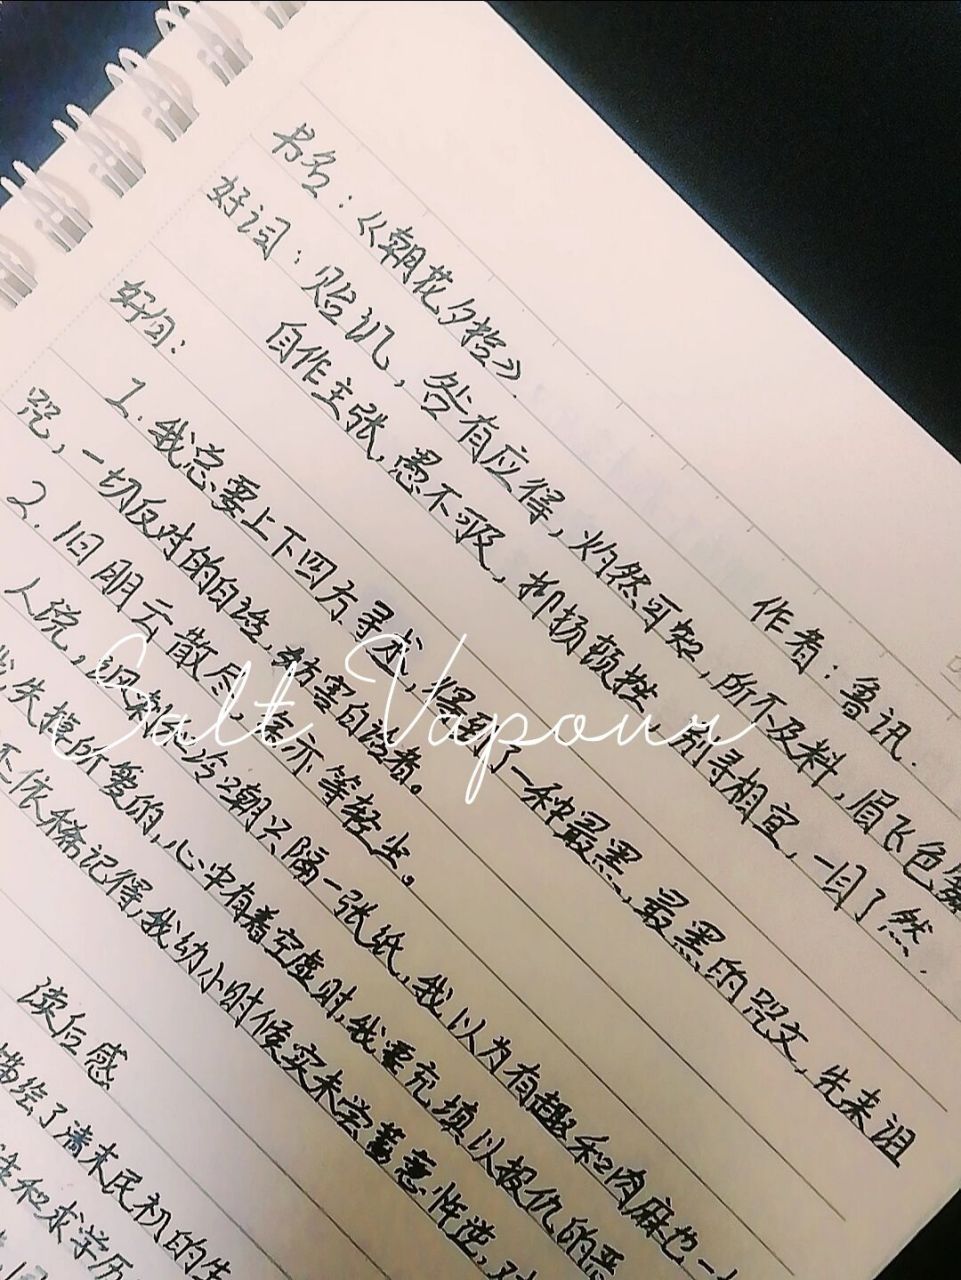 书名：《朝花夕拾》
作者：鲁讯.
好词：贻讥，咎有应得，灼然可知，所不及料，眉飞色
自作主张，愚不可及，抑扬顿挫，别寻相宜，一目了然.
好句：
1.我总要上下四方寻求，得到了一种最黑，最黑的咒文，先来诅
咒，一切反对的白话，妨害白话者。
2.旧朋云散尽，余亦等轻尘。
人说，讽刺和冷嘲只隔一张纸，我以为有趣和肉麻也一
失掉所爱的，心中有着空虚时，我要充填以报仇的恶
还依稀记得，我幼小时候实未尝蓄意忤逆，对
读后感
描绘了清末民初的生
和求学历
Salt Vapour